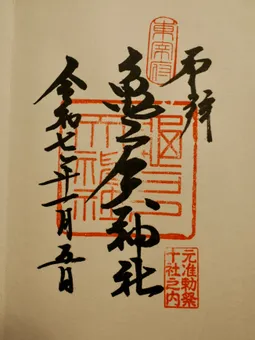 奉拝
東宰府
亀戸天神社
令和七年一月五日
元准勅祭
十社之内